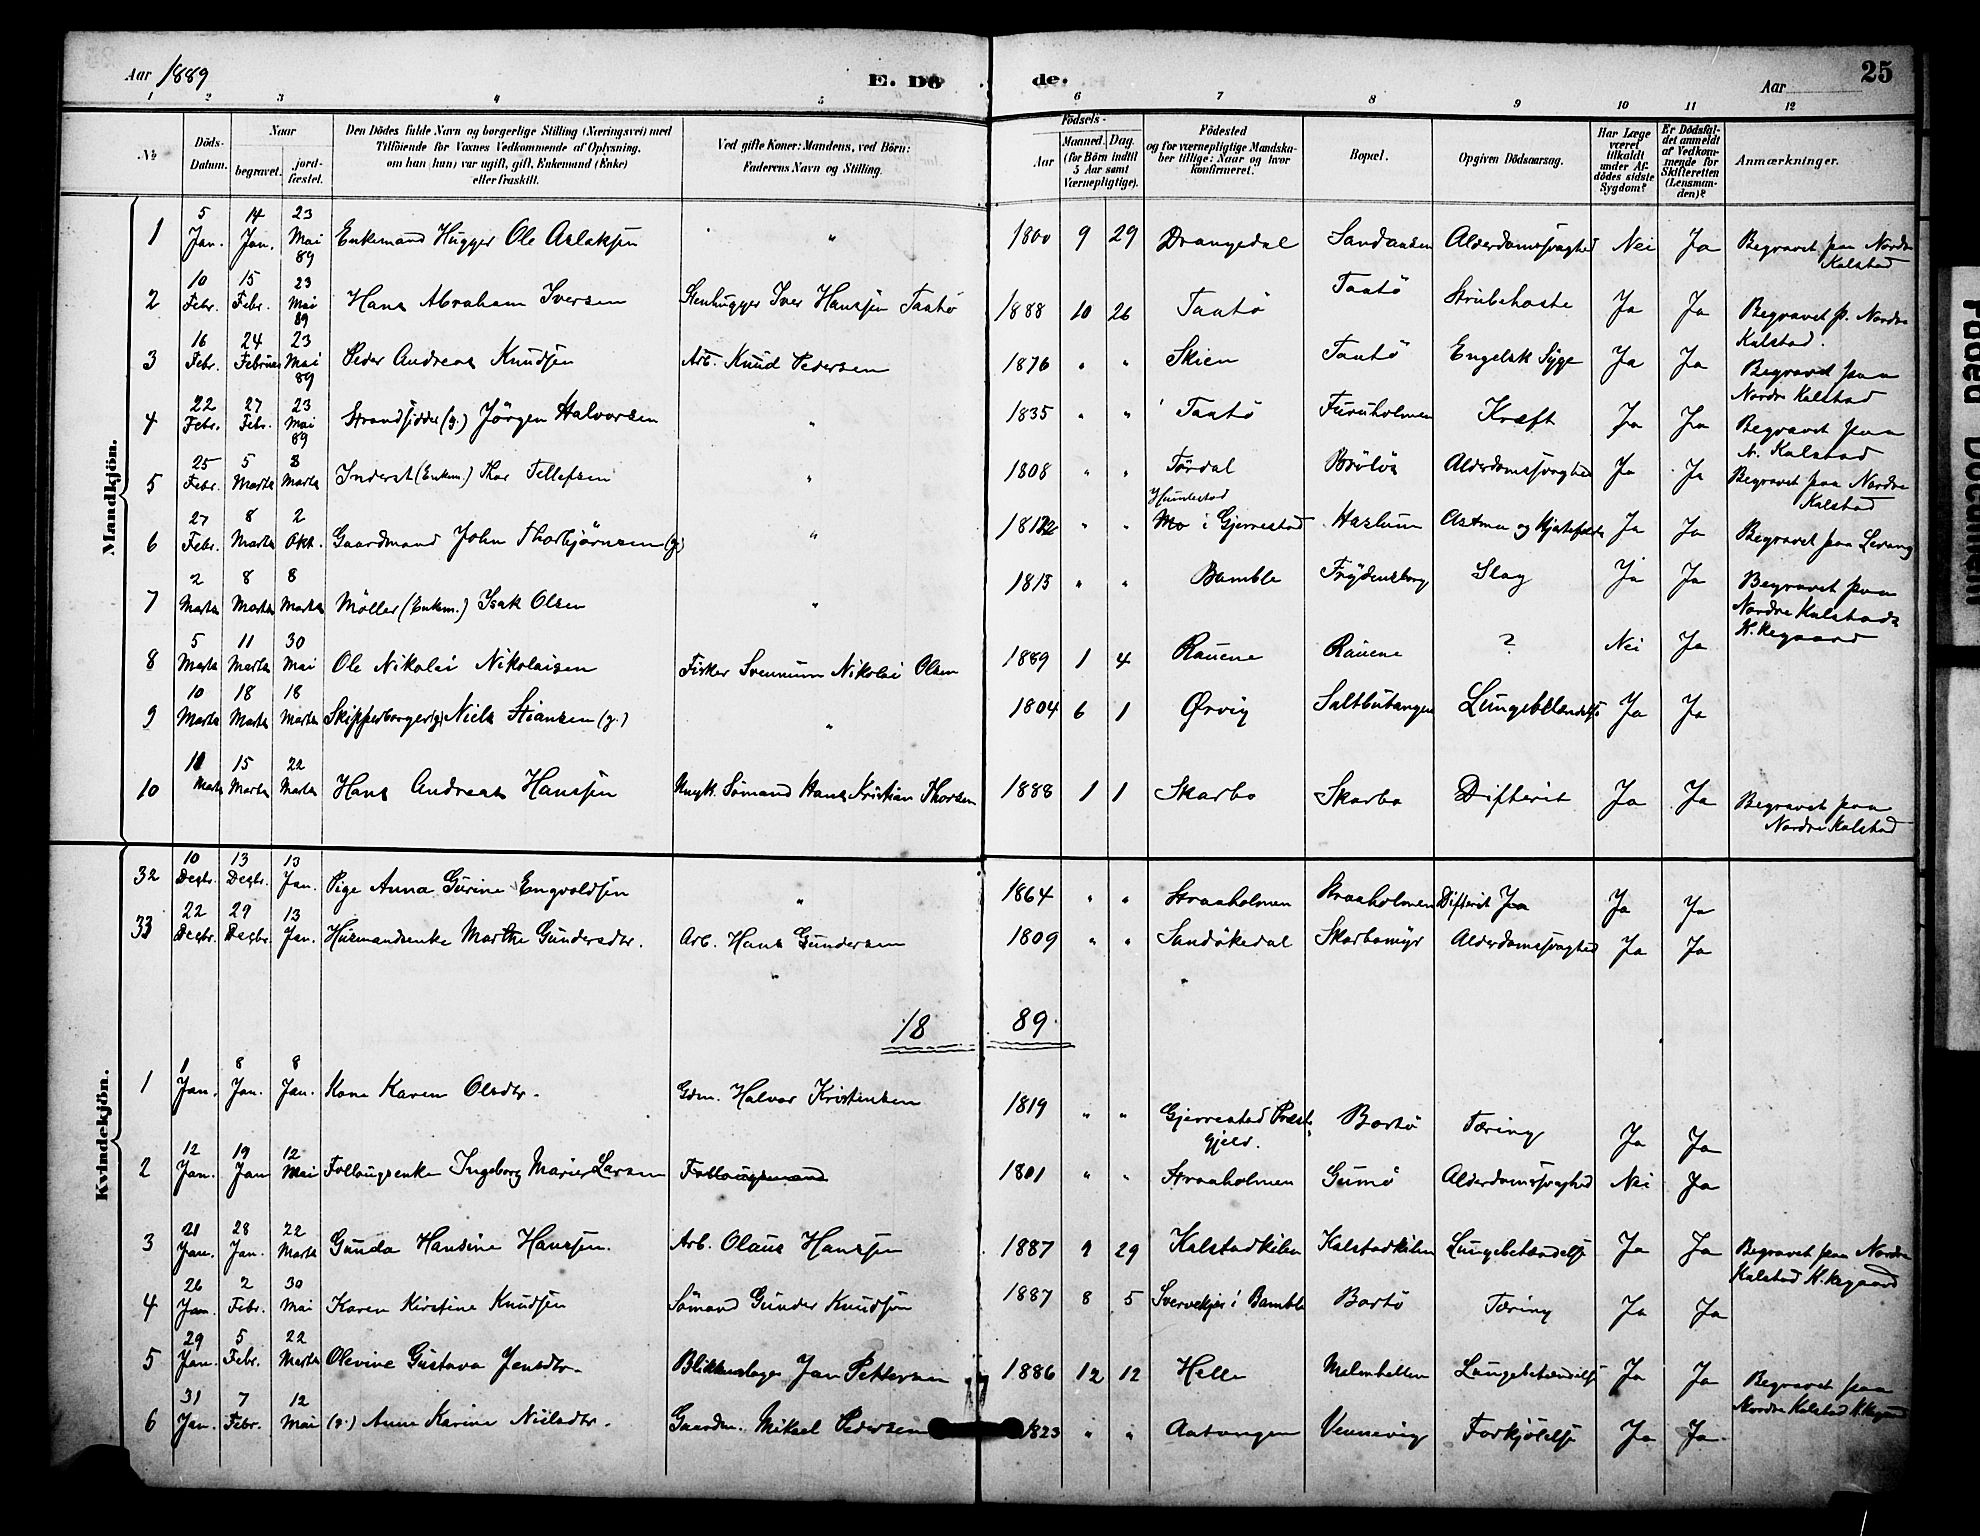 Aar 1889
E. Dö
de.
Aar
25
1 2 3 4 5 6 7 8 9 10 11 12
№
Döds-
Datum.
Naar
begravet.
jord-
fæstet.
Den Dödes fulde Navn og borgerlige Stilling (Næringsvei) med
Tilföiende for Voxnes Vedkommende af Oplysning,
om han (hun) var ugift, gift, Enkemand (Enke)
eller fraskilt.
Ved gifte Koner: Mandens, ved Börn:
Faderens Navn og Stilling.
Födsels-
Aar
Maaned. Dag.
(for Börn indtil
5 Aar samt
Værnepligtige).
Födested
og for værnepligtige Mandska-
ber tillige: Naar og hvor
konfirmeret.
Bopæl.
Opgiven Dödsaarsag.
Har Læge
været
tilkaldt
under Af-
dödes sidste
Sygdom?
Er Dödsfal-
det anmeldt
af Vedkom-
mende for
Skifteretten
(Lensman-
den)?
Anmærkninger.
Mandkjön.
1 5 Jan. 14 Jan. 23 Mai 89 Enkemand Hugger Ole Aslaksen " 1800 9 29 Drangedal Sandaasen Alderdomssvaghed Nei Ja Begravet paa Nordre Kalstad
2 10 Febr. 15 Febr. 23 Mai 89 Hans Abraham Iversen Stenhugger Iver Hanssen Taatö 1888 10 26 Taatö Taatö Strubehoste Ja Ja Begravet p. Nordre Kalstad.
3 16 Febr. 24 Februar 23 Mai 89 Peder Andreas Knudsen Arb. Knud Pedersen 1876 " " Skien Taatö Engelsk Syge Ja Ja Begravet paa Nordre Kalstad
4 22 Febr. 27 Febr. 23 Mai 89 Strandsidder (g.) Jörgen Halvorsen " 1835 " " Taatö Furuholmen Kræft Ja Ja Begravet paa N. Kalstad
5 25 Febr. 5 Marts 8 Marts Inderst (Enkm.) Thor Tellefsen " 1808 " " Tördal Alderdomssvaghed Ja Ja Begravet paa Nordre Kalstad
6 27 Febr. 8 Marts 2 Okt. Gaardmand John Thorbjörnsen (g.) " " " Mo i Gjerrestad Haslum Astma og Ja Ja Begravet paa Levang
7 2 Marts 8 Marts 8 Marts Möller (Enkm.) Isak Olsen " 1813 " " Bamble Frydensborg Slag Ja Ja Begravet paa Nordre Kalstads K.kegaard
8 5 Marts 11 Marts 30 Mai Ole Nikolai Nikolaisen Fisker Svennum Nikolai Olsen 1889 1 4 Rauene Rauene ? Nei Ja
9 10 Marts 18 Marts 18 Marts Skipperborger(g) Niels Stiansen (g.) " 1804 6 1 Ørvig Saltbutangen Lungebetændelse Ja Ja
10 11 Marts 15 Marts 22 Marts Hans Andreas Hanssen Ungk. Sömand Hans Kristian Thorsen 1888 1 1 Skarbo Skarbo Difterit Ja Ja Begravet paa Nordre Kalstad
Kvindekjön.
32 10 Decbr. 13 Decbr. 13 Jan. Pige Anna Gurine Engvoldsen " 1864 " " Straaholmen Straaholmen Difterit Ja Ja Ja
33 22 Decbr. 29 Decbr. 13 Jan. Husmandsenke Marthe Gundersdtr. Arb. Hans Gundersen 1809 " " Sandökedal Skarbomyr Alderdomssvaghed Ja Ja
1889.
1 1 Jan. 8 Jan. 8 Jan. Kone Karen Olsdtr. Gdm. Halvor Kristensen 1819 " " Gjerrestad Præste- gjeld. Bortö Tæring Ja Ja
2 12 Jan. 19 Jan 12 Mai Follaugsenke Ingeborg Marie Larsen Follaugsmand 1801 " " Straaholmen Gumö Alderdomssvaghed Nei Ja
3 21 Jan. 28 Jan. 22 Marts Gunda Hansine Hanssen. Arb. Olaus Hanssen 1887 9 29 Kalstadkilen Kalstadkilen Lungebetændelse Ja Ja Begravet paa Nordre Kalstad K.kegaard
4 26 Jan. 2 Febr. 30 Mai Karen Kirstine Knudsen Sömand Gunder Knudsen 1887 8 5 i Bamble Bortö Tæring Ja Ja
5 29 Jan. 5 Febr. 22 Marts Olevine Gustava Jensdtr. Blikkenslager Jan Pettersen 1886 12 12 Helle Lungebetændelse Ja Ja Begravet paa Nordre Kalstad K.kegaard
6 31 Jan. 7 Febr. 12 Mai (g.) Anne Karine Nielsdtr. Gaardm. Mikael Pedersen 1823 " " Aatangen Vennevig Forkjölelse Ja Ja
Faded Document